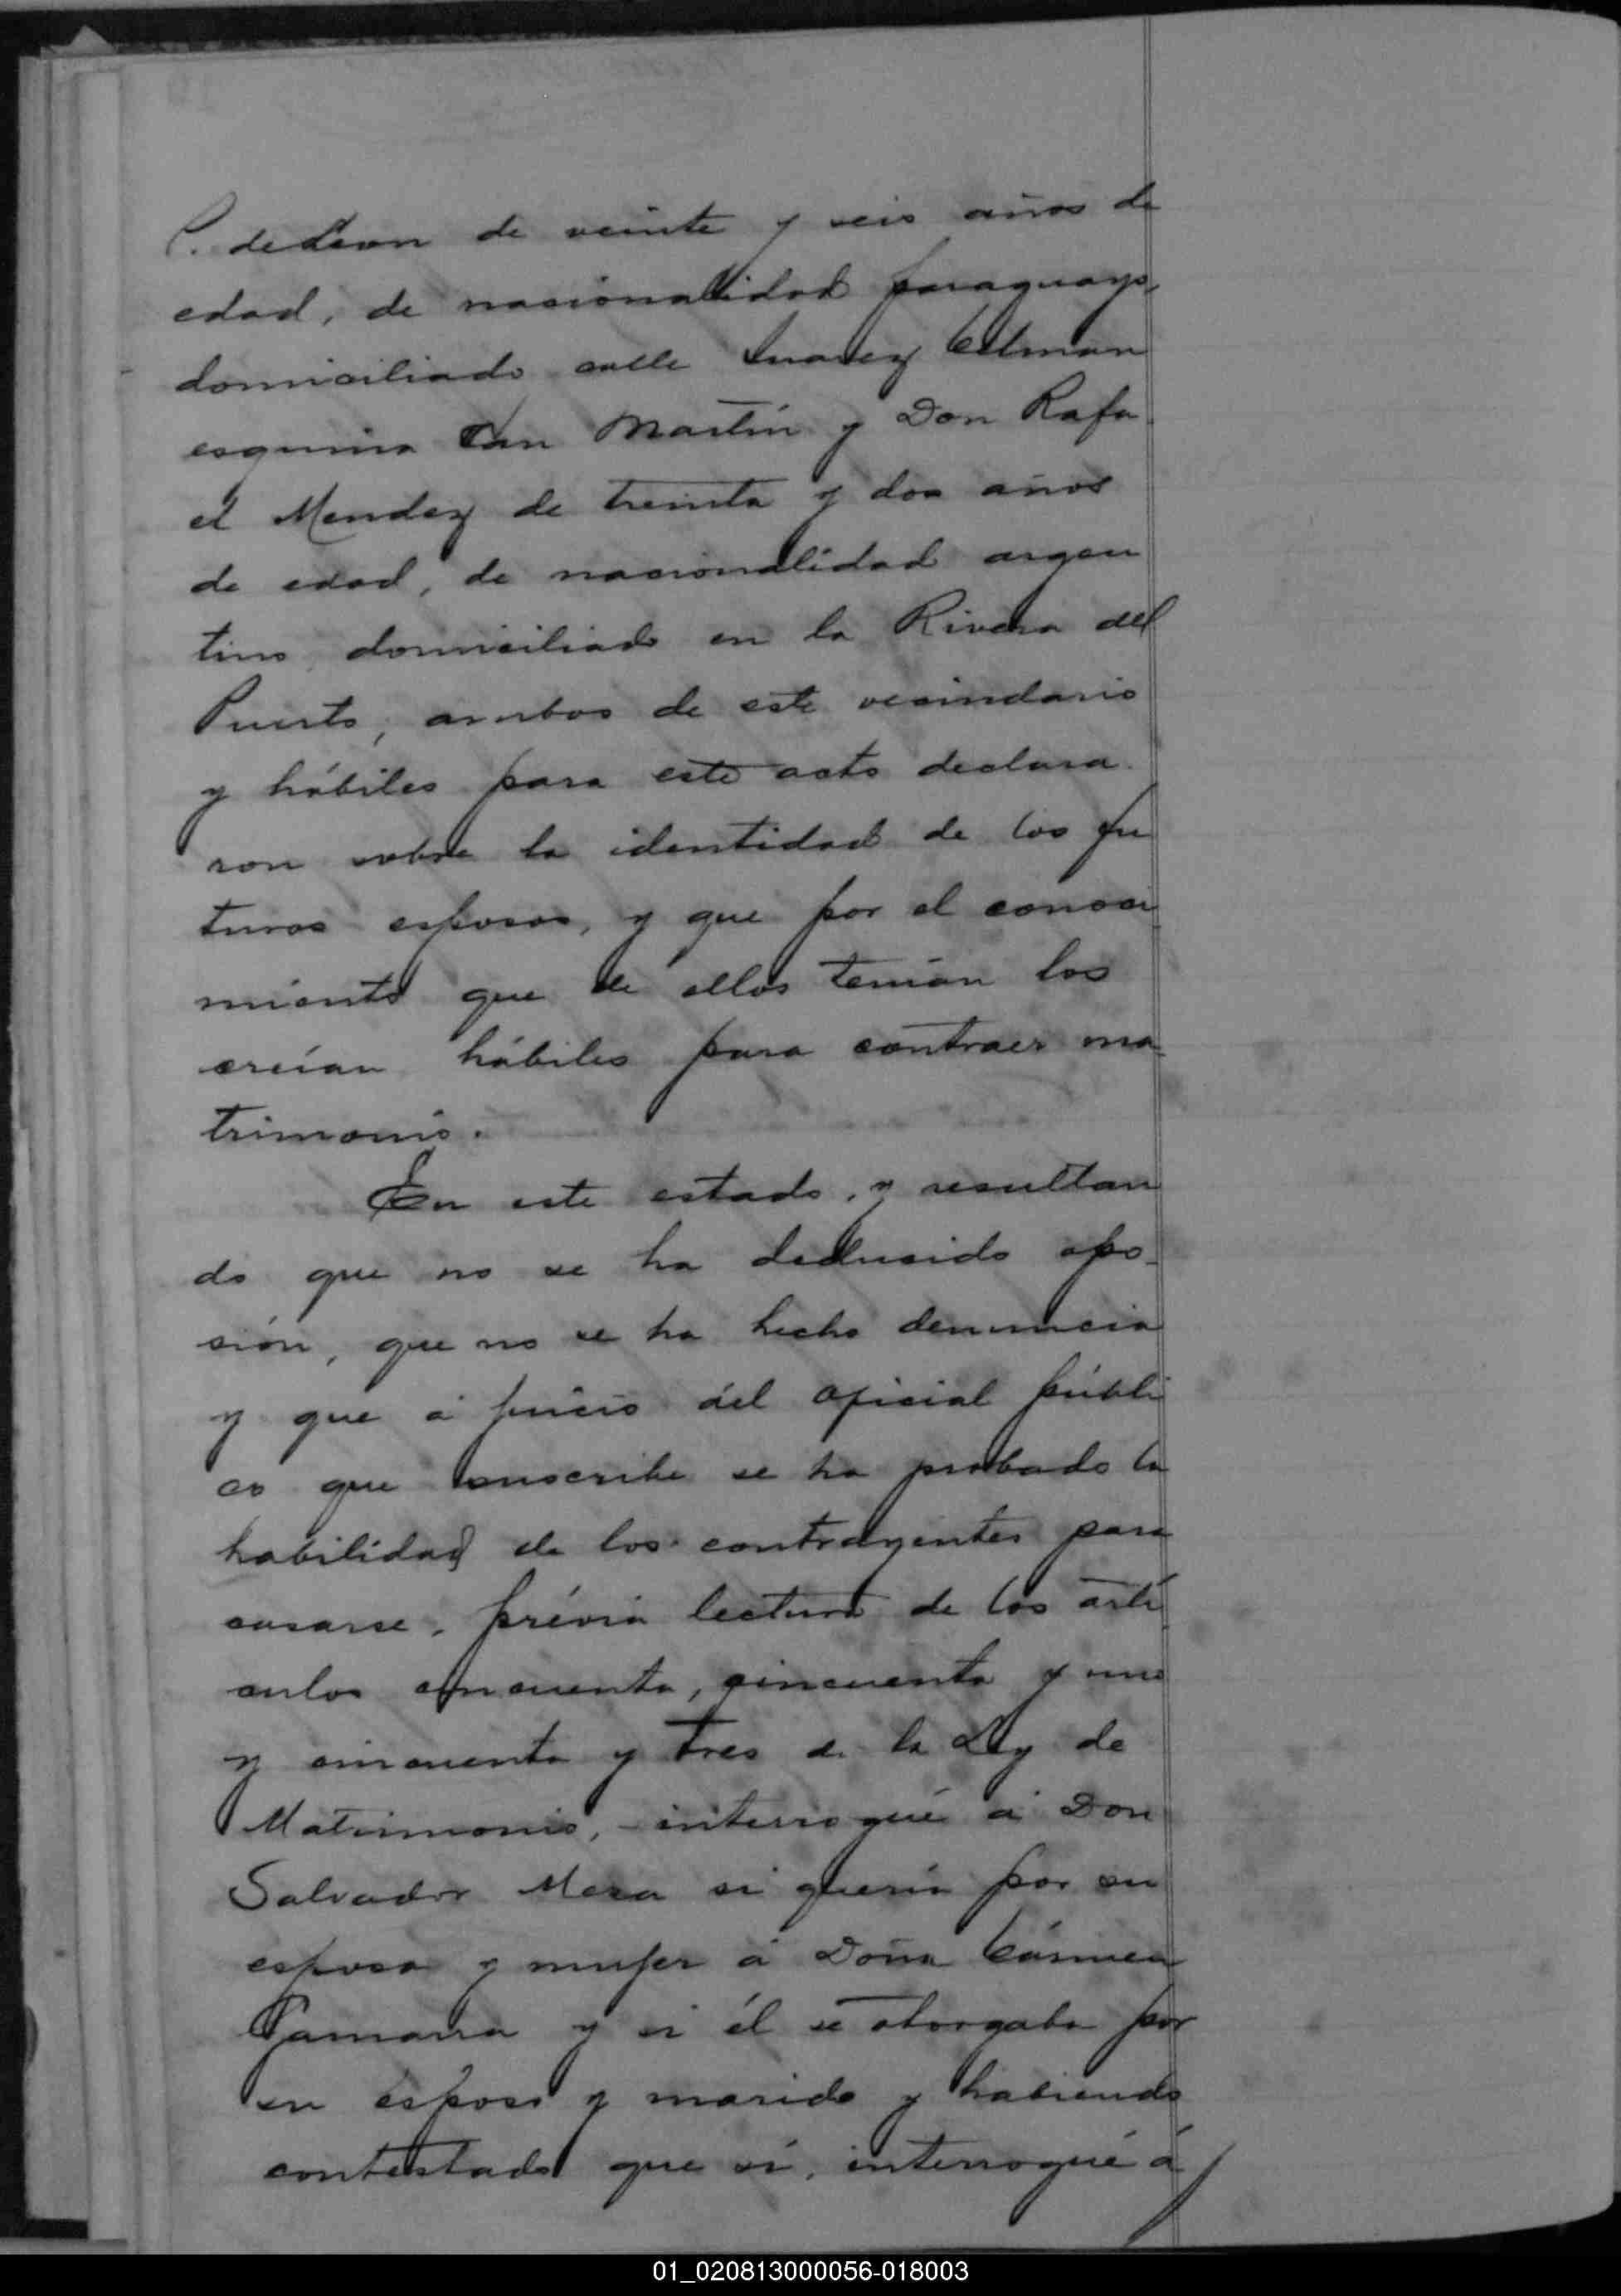 P. de Leon de veinte y seis años de
edad, de nacionalidad paraguayo,
domiciliado calle Juarez Celman
esquina San Martín y Don Rafa
el Mendez de treinta y dos años
de edad, de nacionalidad argen
tino, domiciliado en la Rivera del
Puerto, ambos de este vecindario
y hábiles para este acto declara
ron sobre la identidad de los fu
turos esposos, y que por el conoci
miento que de ellos tenían los
creían hábiles para contraer ma
trimonio.
En este estado, y resultan
do que no se ha deducido opo-
sión, que no se ha hecho denuncia
y que á juicio del oficial públi
co que suscribe se ha probado la
habilidad de los contrayentes para
casarse, prévia lectura de los artí
culos cincuenta, cincuenta y uno
y cincuenta y tres de la Ley de
Matrimonio, interrogué á Don
Salvador Meza si quería por su
esposa y mujer á Doña Cármen
Gamarra y si él se otorgaba por
su esposo y marido y habiendo
contestado que sí, interrogué á
01_020813000056-018003